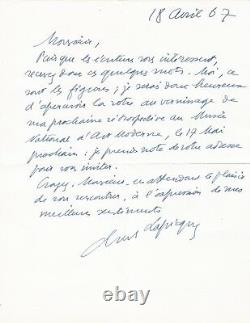 18 Avril 67
Monsieur,
Puisque l'écriture vous intéresse,
recevez donc ces quelques mots. Moi, ce
sont les figures ; je serai donc heureux
d'apercevoir la vôtre au vernissage de
ma prochaine rétrospective au Musée
National d'Art Moderne, le 17 Mai
prochain : je prends note de votre adresse
pour vous inviter.
Croyez, Monsieur, en attendant le plaisir
de vous rencontrer, à l'expression de mes
meilleurs sentiments
Charles Lapicque
ebay